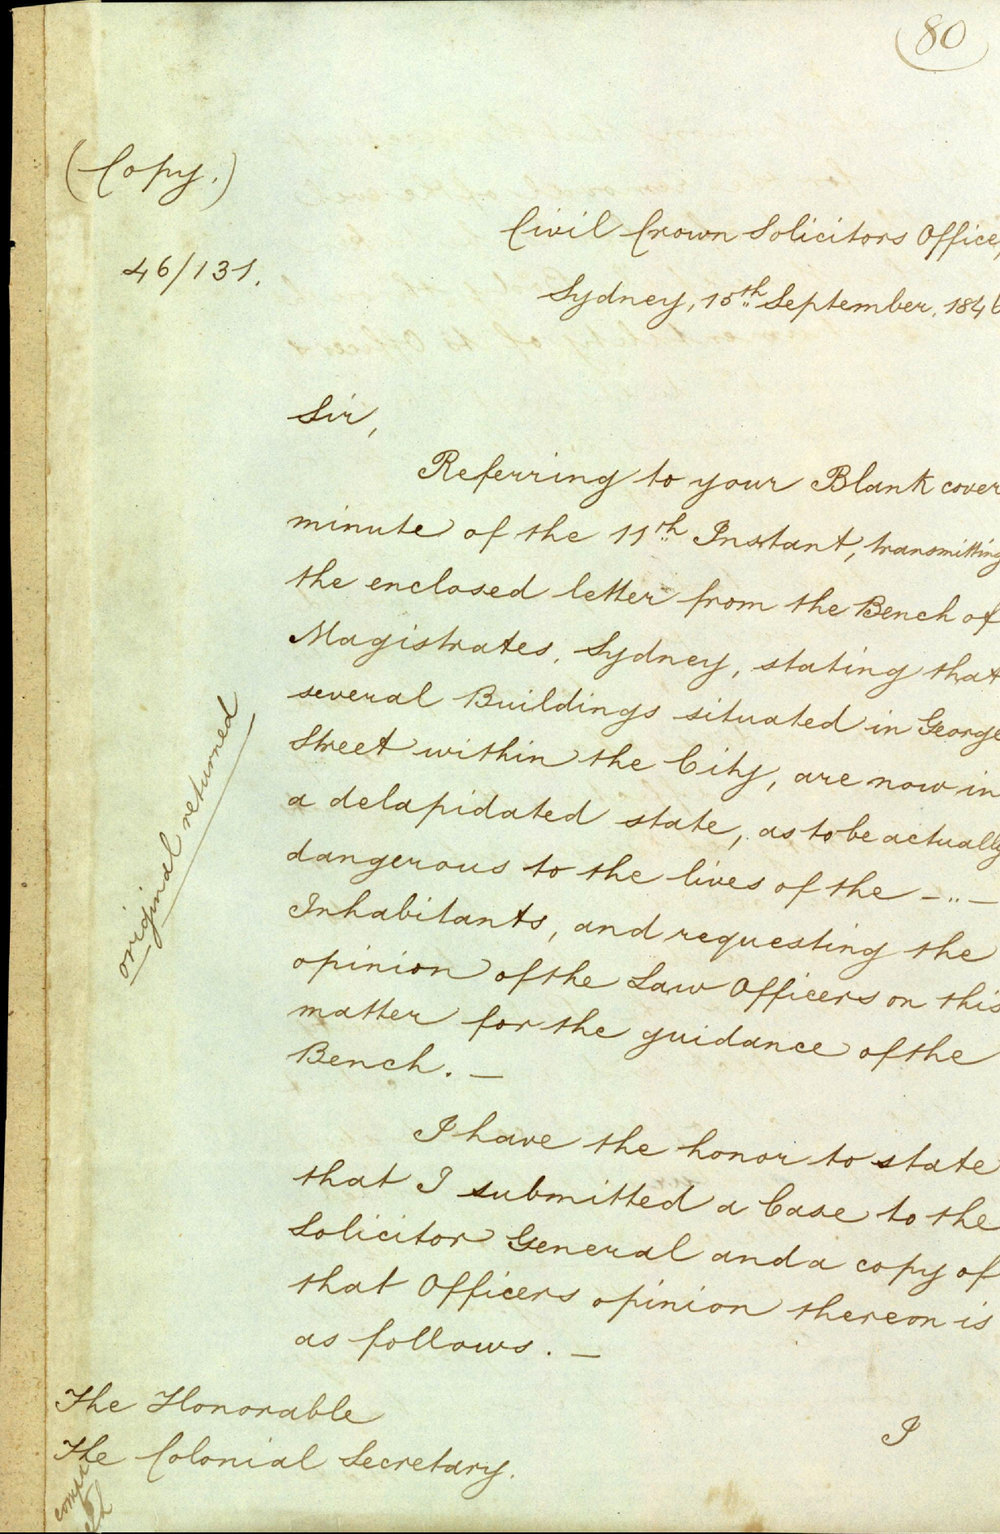 80
(Copy.)
46/131.
Civil Crown Solicitors Office,
Sydney, 15th September, 1846
Sir,
Referring to your Blank cover
minute of the 11th Instant, transmitting
the enclosed letter from the Bench of
Magistrates, Sydney, stating that
several Buildings situated in George
Street within the City, are now in
a delapidated state, as to be actually
dangerous to the lives of the -"-
Inhabitants, and requesting the
opinion of the Law Officers on this
matter for the guidance of the
Bench. _
original returned
I have the honor to state
that I submitted a Case to the
Solicitor General and a copy of
that Officers opinion thereon is
as follows. _
The Honorable
The Colonial Secretary.
I